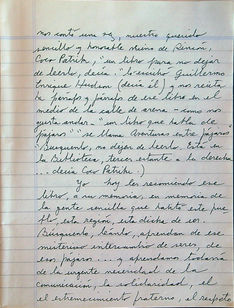 nos contó una vez, nuestro querido
sencillo y honorable
Coco Patiño, "un libro para no dejar
de leerlo, decía "lo escribió Guillermo
Enrique Hudson (decía él) y nos recita
ba párrafos y párrafos de ese libro en el
medio de la calle de arena - como nos
gusta andar - "un libro que habla de
pájaros" "se llama Aventuras entre pájaros
"Búsquenlo, no dejen de leerlo. Está en
la Biblioteca, tercer estante a la derecha
... decía Coco Patiño :)
Yo hoy les recomiendo ese
libro, a su memoria, en memoria de
la gente sencilla que habita este pue
blo, esta región, esta dicha de ser.
Búsquenlo, léanlo, aprendan de ese
misterioso intercambio de seres, de
esos pájaros ..... y aprendamos todavía
de la urgente necesidad de la
comunicación, la solidaridad, el
el estremecimiento fraterno, el respeto